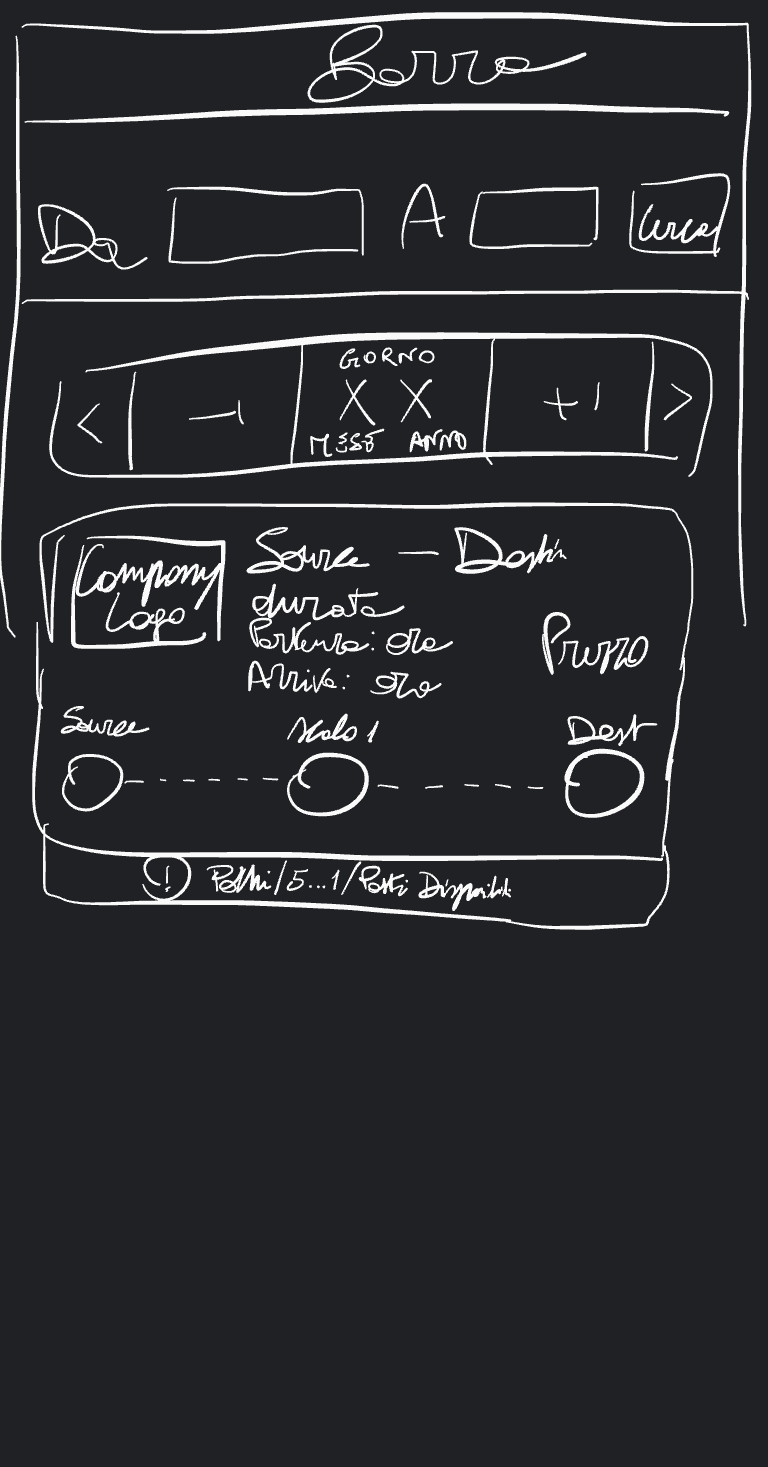 Barra
Da A Cerca
< -1 GIORNO X X MESE ANNO +1 >
Company Logo
Source — Destin
durata
Partenza: ora
Arrivo: ora
Prezzo
Source Scalo 1 Dest
! Pochi/5...1/Posti Disponibili